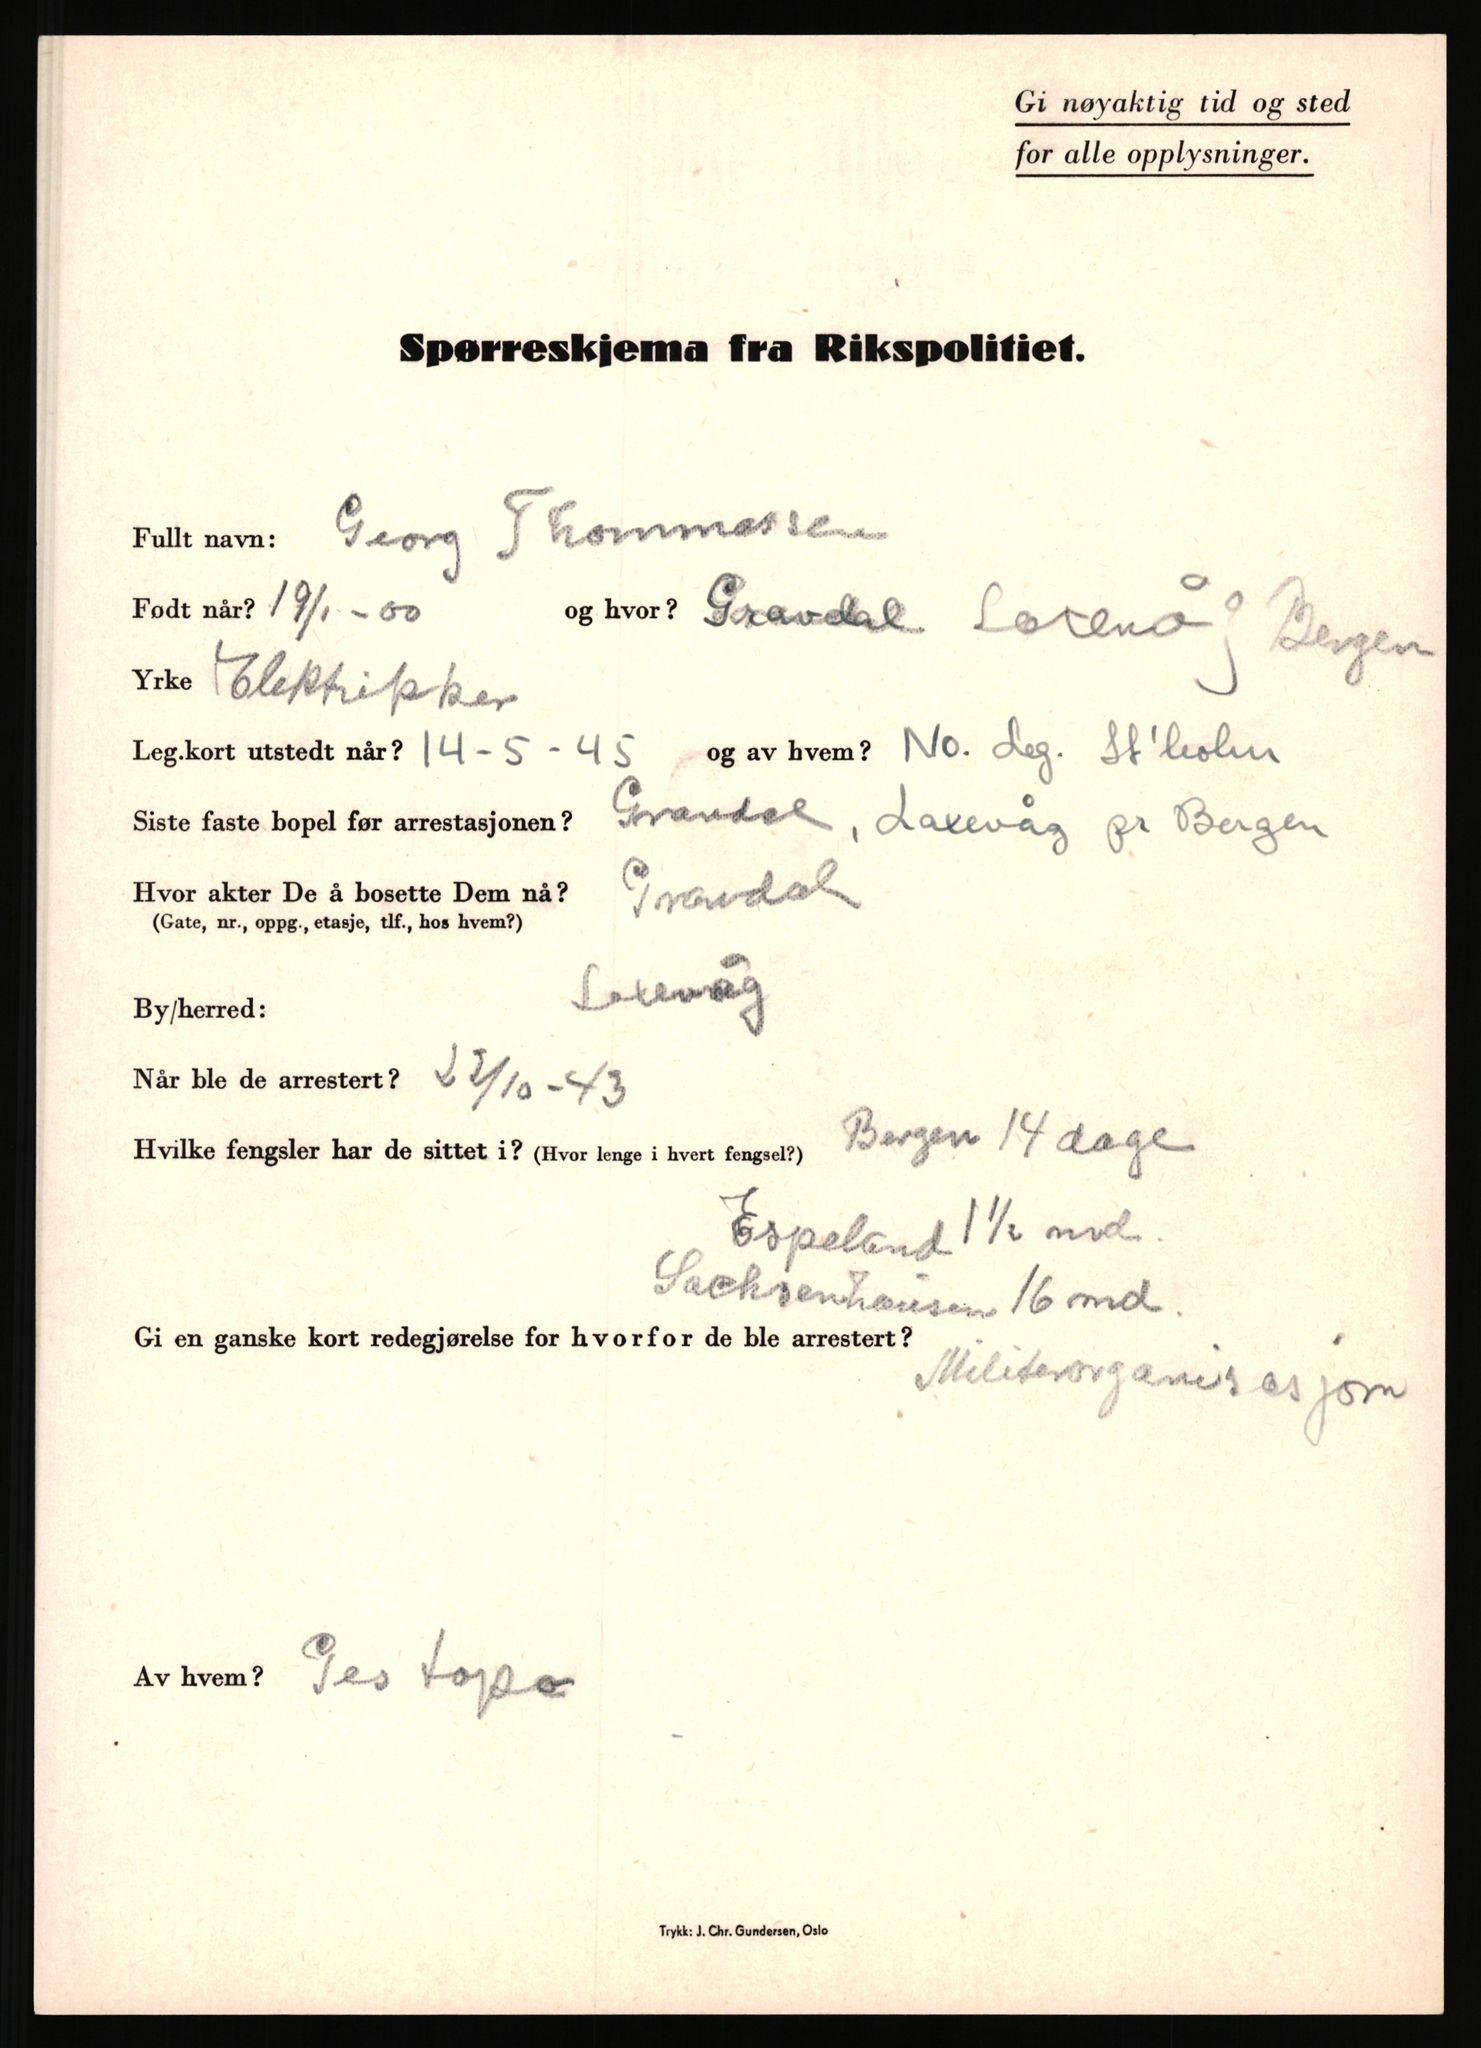 Gi nøyaktig tid og sted
for alle opplysninger.
Spørreskjema fra Rikspolitiet.
Fullt navn: Georg Thommassen
Født når? 19/1-00 og hvor? Gravdal Laxevåg Bergen
Yrke Elektrikker
Leg.kort utstedt når? 14-5-45 og av hvem? No. Leg. St'holm
Siste faste bopel før arrestasjonen? Gravdal, Laxevåg pr Bergen
Hvor akter De å bosette Dem nå? Gravdal
(Gate, nr., oppg., etasje, tlf., hos hvem?)
By/herred: Laxevåg
Når ble de arrestert? /10-43
Hvilke fengsler har de sittet i? (Hvor lenge i hvert fengsel?) Bergen 14 dage
Espeland 1 1/2 md.
Sachsenhausen 16 md.
Gi en ganske kort redegjørelse for hvorfor de ble arrestert?
Militerorganisasjorn
Av hvem? Gestapo
Trykk: J. Chr. Gundersen, Oslo